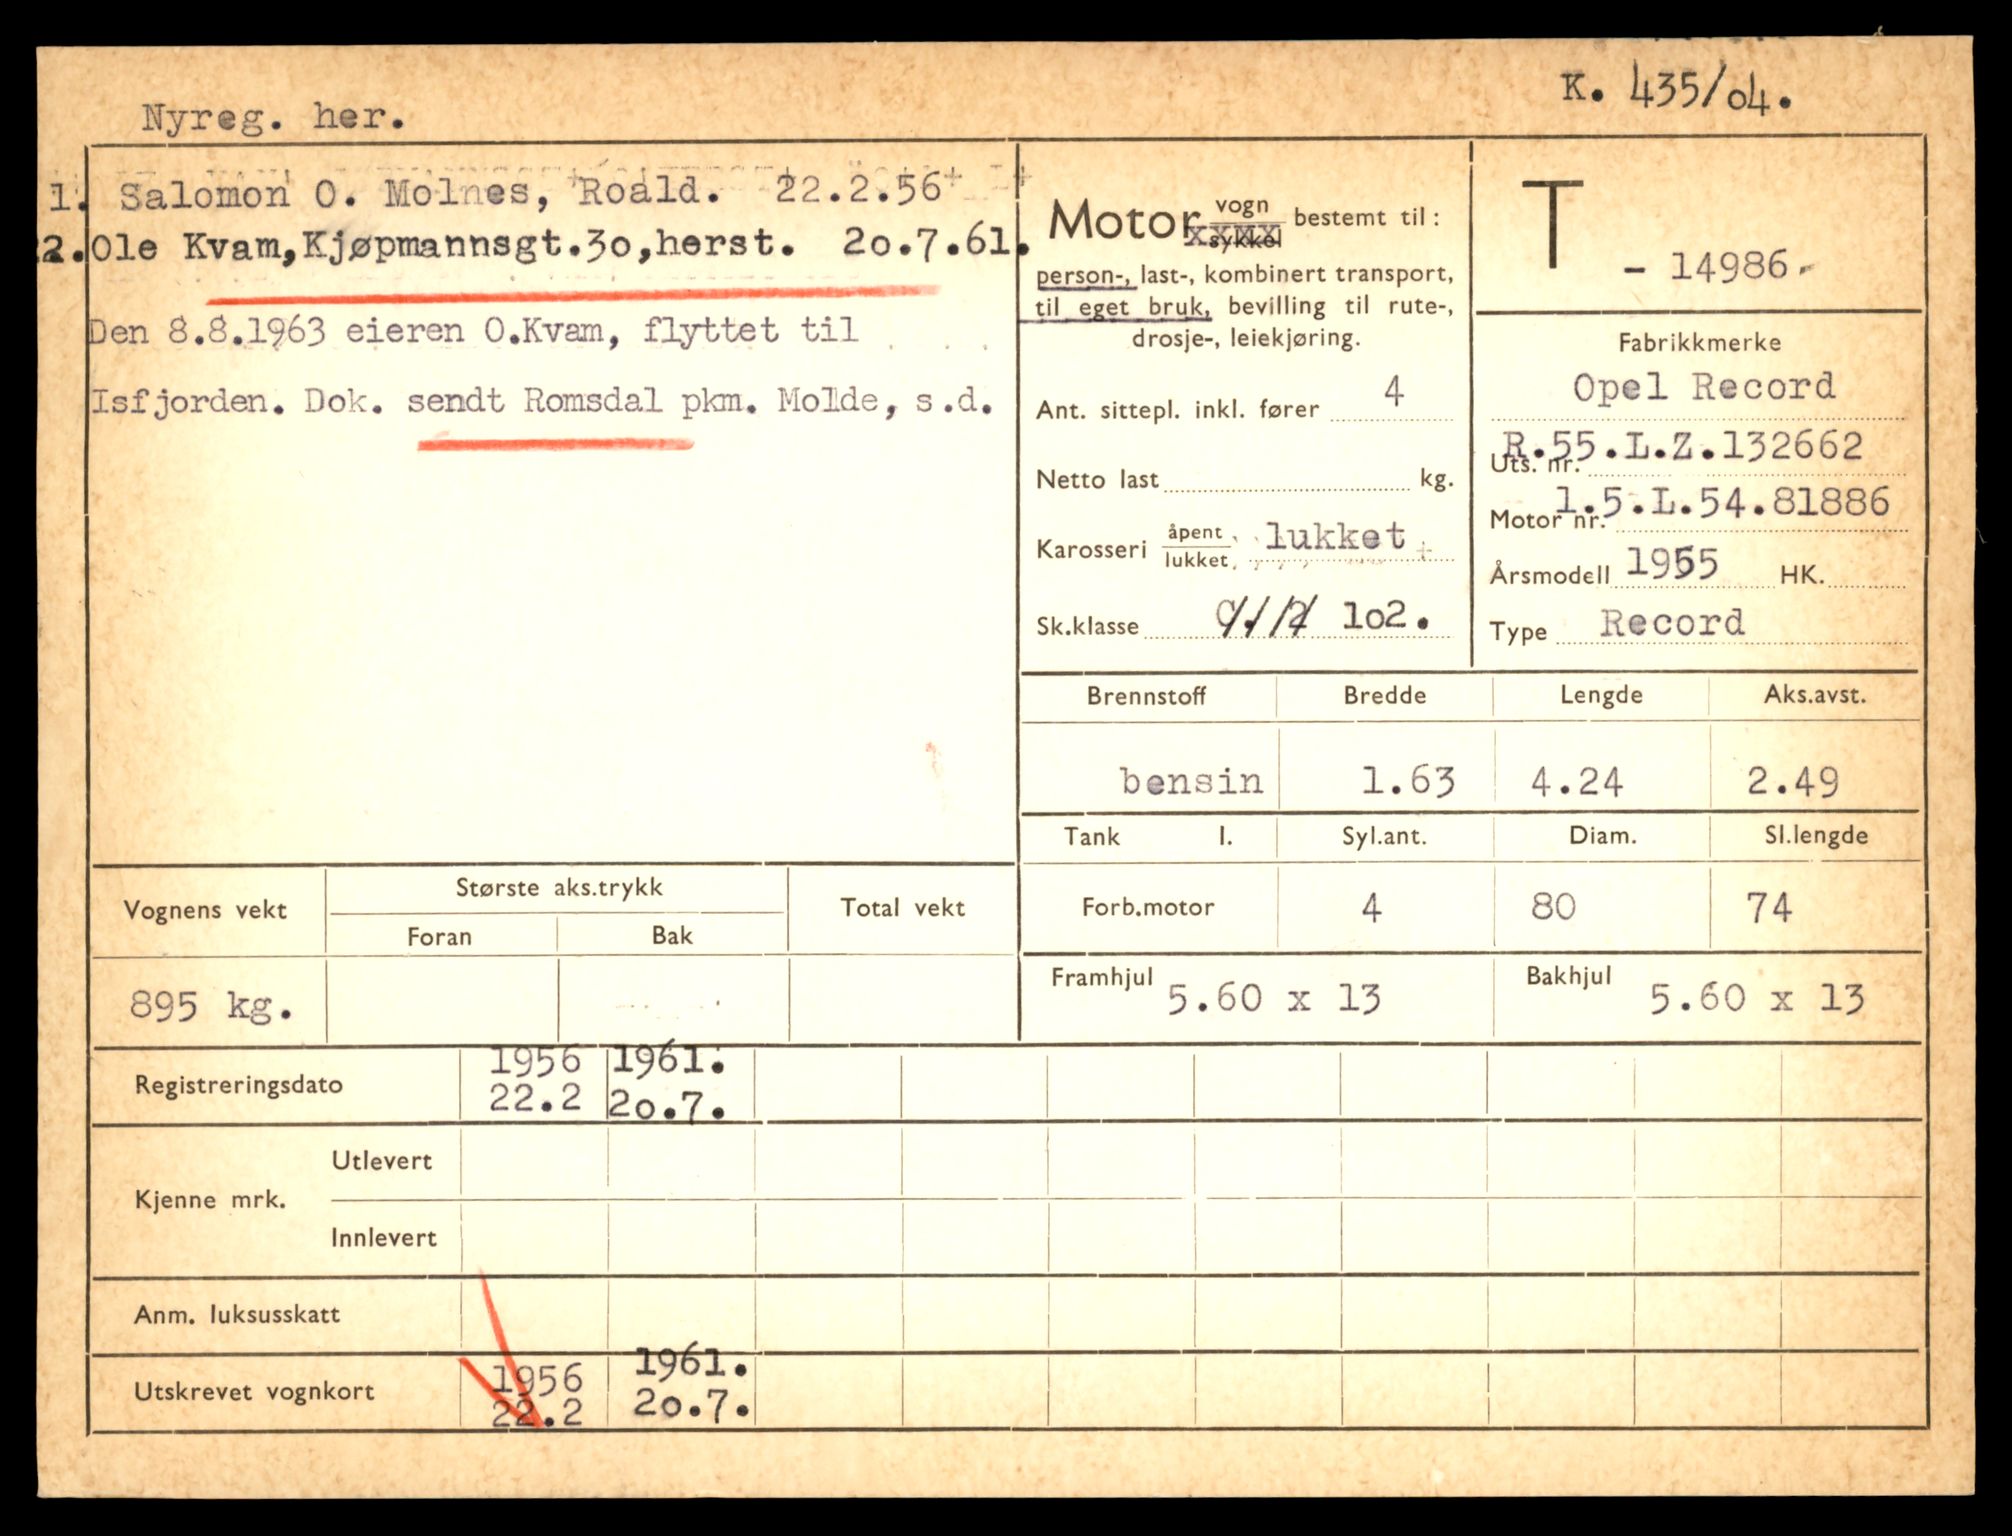 K. 435/04.
Nyreg. her.
1. Salomon O. Molnes, Roald. 22.2.56
2. Ole Kvam, Kjøpmannsgt.3o, herst. 2o.7.61.
Den 8.8.1963 eieren O.Kvam, flyttet til
Isfjorden. Dok. sendt Romsdal pkm. Molde, s.d.
Motor vogn sykkel bestemt til:
person-, last-, kombinert transport,
til eget bruk, bevilling til rute-,
drosje-, leiekjøring.
Ant. sittepl. inkl. fører 4
Netto last kg.
Karosseri åpent lukket lukket
Sk.klasse 1o2.
T - 14986.
Fabrikkmerke
Opel Record
Uts. nr. R.55.L.Z.132662
Motor nr. 1.5.L.54.81886
Årsmodell 1955 HK.
Type Record
Brennstoff Bredde Lengde Aks.avst.
bensin 1.63 4.24 2.49
Tank l. Syl.ant. Diam. Sl.lengde
Forb.motor 4 80 74
Framhjul 5.60 x 13 Bakhjul 5.60 x 13
Vognens vekt Største aks.trykk Total vekt
Foran Bak
895 kg.
Registreringsdato 1956 22.2 1961. 2o.7.
Kjenne mrk. Utlevert
Innlevert
Anm. luksusskatt
Utskrevet vognkort 1956 22.2 1961. 2o.7.